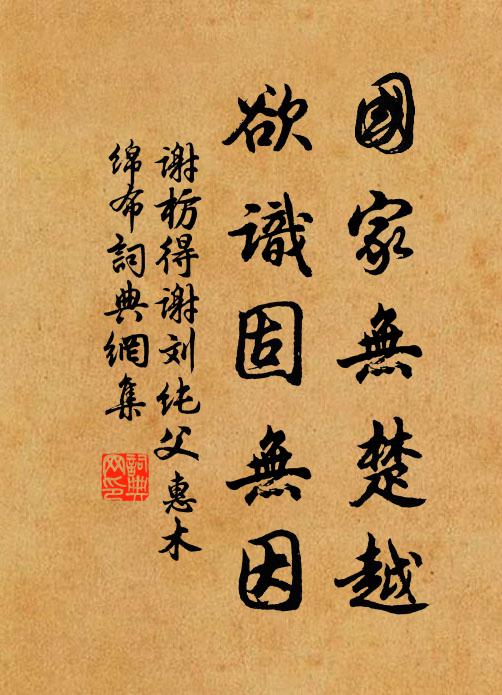 國家無楚越
欲識固無因
谢枋得谢刘纯父惠木
绵布詞典網集
詞典
网印